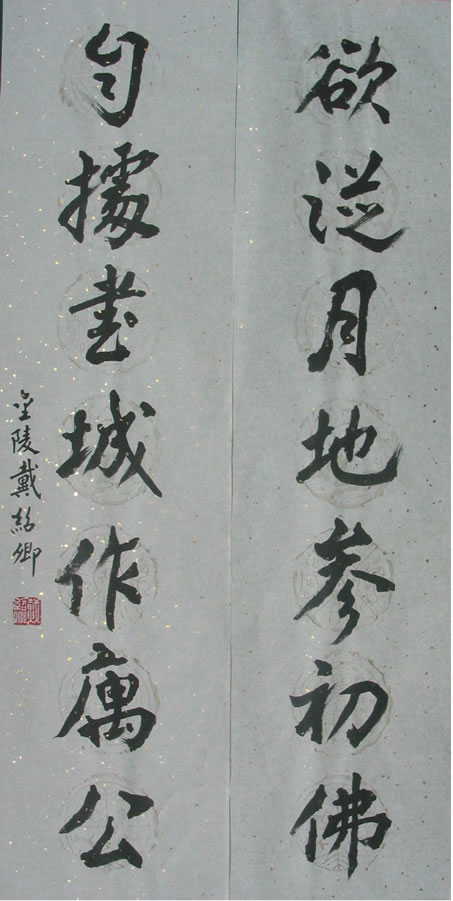 欲從月地参初佛
自據書城作寓公
金陵戴紹卿